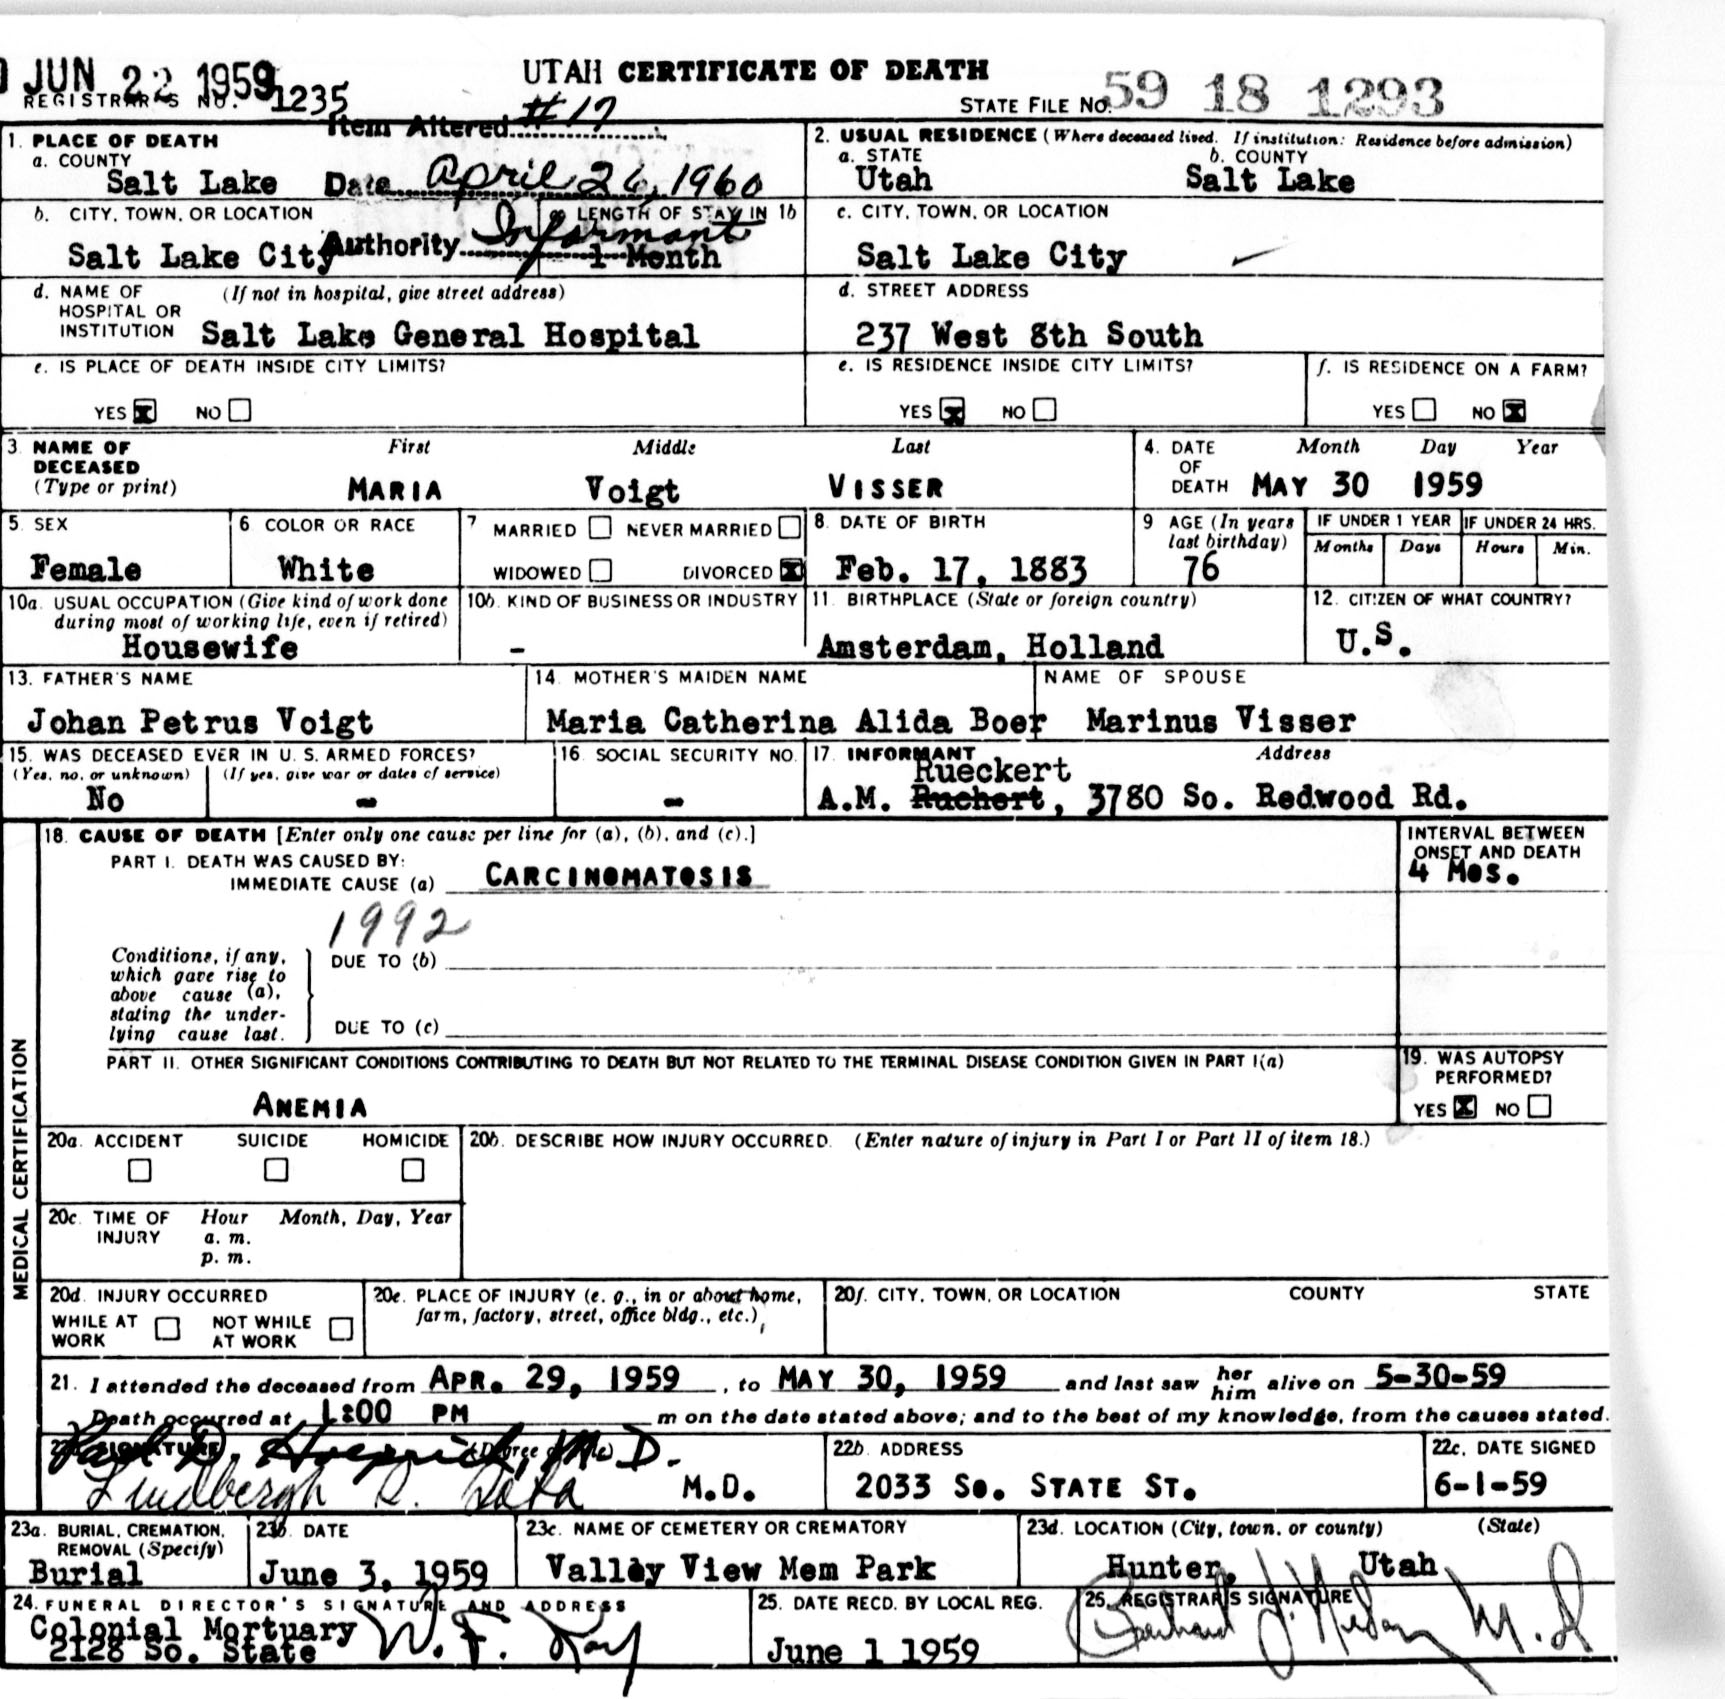 JUN 22 1959 UTAH CERTIFICATE OF DEATH
REGISTRAR'S NO. 1235 STATE FILE NO. 59 18 1293
Item Altered #17
1. PLACE OF DEATH
a. COUNTY
Salt Lake Date April 26, 1960
2. USUAL RESIDENCE (Where deceased lived. If institution: Residence before admission)
a. STATE b. COUNTY
Utah Salt Lake
b. CITY, TOWN, OR LOCATION
Salt Lake City Authority Informant
c. LENGTH OF STAY IN 1b
1 Month
c. CITY, TOWN, OR LOCATION
Salt Lake City
d. NAME OF (If not in hospital, give street address)
HOSPITAL OR
INSTITUTION Salt Lake General Hospital
d. STREET ADDRESS
237 West 8th South
e. IS PLACE OF DEATH INSIDE CITY LIMITS?
YES X NO
e. IS RESIDENCE INSIDE CITY LIMITS?
YES X NO
f. IS RESIDENCE ON A FARM?
YES NO X
3. NAME OF First Middle Last
DECEASED
(Type or print) MARIA Voigt VISSER
4. DATE Month Day Year
OF
DEATH MAY 30 1959
5. SEX
Female
6. COLOR OR RACE
White
7. MARRIED NEVER MARRIED
WIDOWED DIVORCED X
8. DATE OF BIRTH
Feb. 17, 1883
9. AGE (In years
last birthday)
76
IF UNDER 1 YEAR IF UNDER 24 HRS.
Months Days Hours Min.
10a. USUAL OCCUPATION (Give kind of work done
during most of working life, even if retired)
Housewife
10b. KIND OF BUSINESS OR INDUSTRY
-
11. BIRTHPLACE (State or foreign country)
Amsterdam, Holland
12. CITIZEN OF WHAT COUNTRY?
U.S.
13. FATHER'S NAME
Johan Petrus Voigt
14. MOTHER'S MAIDEN NAME
Maria Catherina Alida Boer
NAME OF SPOUSE
Marinus Visser
15. WAS DECEASED EVER IN U. S. ARMED FORCES?
(Yes, no, or unknown) (If yes, give war or dates of service)
No -
16. SOCIAL SECURITY NO.
-
17. INFORMANT Address
Rueckert
A.M. Ruchert, 3780 So. Redwood Rd.
MEDICAL CERTIFICATION
18. CAUSE OF DEATH [Enter only one cause per line for (a), (b), and (c).]
PART I. DEATH WAS CAUSED BY:
IMMEDIATE CAUSE (a) CARCINOMATOSIS
INTERVAL BETWEEN
ONSET AND DEATH
4 MOS.
1992
Conditions, if any,
which gave rise to
above cause (a),
stating the under-
lying cause last.
DUE TO (b)
DUE TO (c)
PART II. OTHER SIGNIFICANT CONDITIONS CONTRIBUTING TO DEATH BUT NOT RELATED TO THE TERMINAL DISEASE CONDITION GIVEN IN PART I(a)
ANEMIA
19. WAS AUTOPSY
PERFORMED?
YES X NO
20a. ACCIDENT SUICIDE HOMICIDE
20b. DESCRIBE HOW INJURY OCCURRED. (Enter nature of injury in Part I or Part II of item 18.)
20c. TIME OF Hour Month, Day, Year
INJURY a. m.
p. m.
20d. INJURY OCCURRED
WHILE AT NOT WHILE
WORK AT WORK
20e. PLACE OF INJURY (e. g., in or about home,
farm, factory, street, office bldg., etc.)
20f. CITY, TOWN, OR LOCATION COUNTY STATE
21. I attended the deceased from APR. 29, 1959, to MAY 30, 1959 and last saw her
him alive on 5-30-59
Death occurred at 1:00 PM m on the date stated above; and to the best of my knowledge, from the causes stated.
SIGNATURE (Degree or title)
Paul D. M.D.
Lindbergh S. Sata M.D.
22b. ADDRESS
2033 SO. STATE ST.
22c. DATE SIGNED
6-1-59
23a. BURIAL, CREMATION,
REMOVAL (Specify)
Burial
23b. DATE
June 3, 1959
23c. NAME OF CEMETERY OR CREMATORY
Valley View Mem Park
23d. LOCATION (City, town, or county) (State)
Hunter, Utah
24. FUNERAL DIRECTOR'S SIGNATURE AND ADDRESS
Colonial Mortuary W. F. Kay
2128 So. State
25. DATE RECD. BY LOCAL REG.
June 1 1959
25. REGISTRAR'S SIGNATURE
M.D